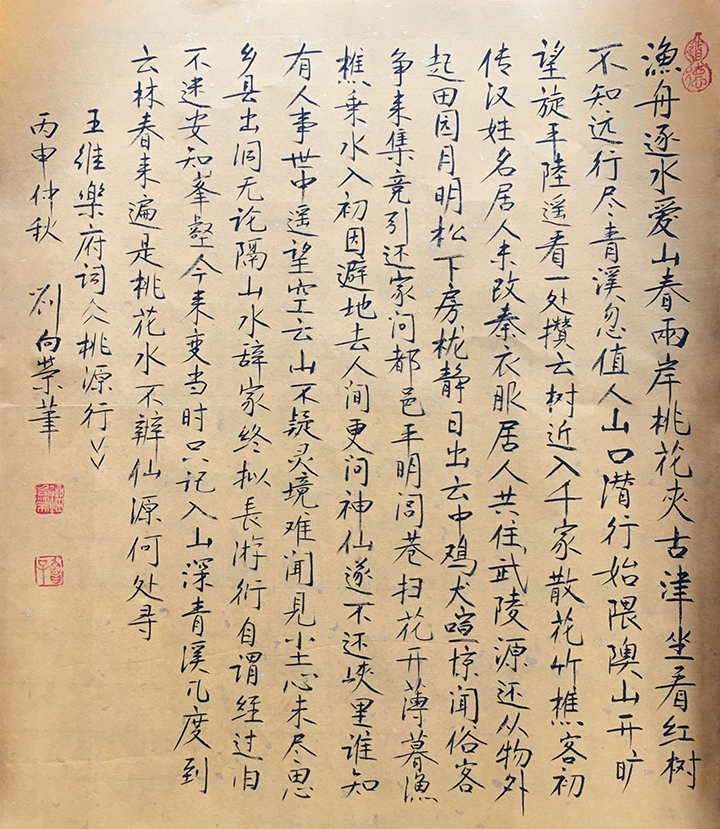 漁舟逐水爱山春兩岸桃花夾古津坐看红树
不知远行尽青溪忽值人山口潜行始隈隩山开旷
望旋平陸遥看一处攒云树近入千家散花竹樵客初
传汉姓名居人未改秦衣服居人共住武陵源还从物外
起田园月明松下房栊静日出云中鸡犬喧惊闻俗客
争来集竞引还家问都邑平明闾巷扫花开薄暮漁
樵乘水入初因避地去人间更问神仙遂不还峽里谁知
有人事世中遥望空云山不疑灵境难闻见尘心未尽思
乡县出洞无论隔山水辞家终拟長游衍自谓经过旧
不迷安知峯壑今来变当时只记入山深青溪几度到
云林春来遍是桃花水不辨仙源何处寻
王维樂府词《桃源行》
丙申仲秋 劉向荣筆